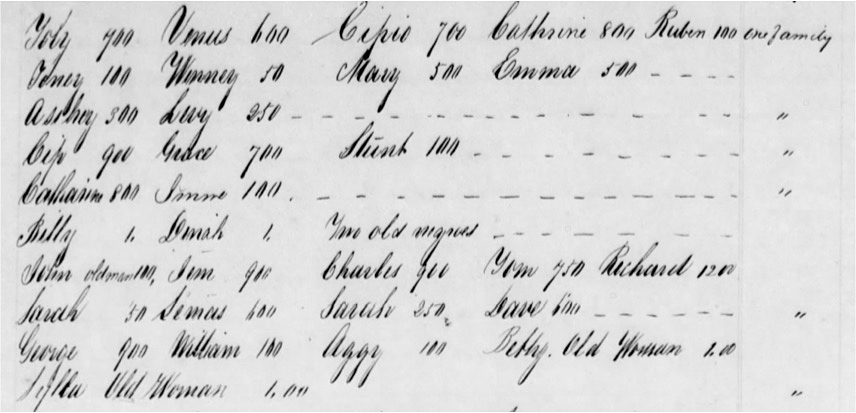 Toby 700 Venus 600 Cipio 700 Cathrine 800 Ruben 100 one family
100 Winney 50 Mary 500 Emma 500 - - - -
300 Levy 250 - - - - - - - - - - - "
Cip 900 Grace 700 Stunt 100 - - - - - - - - "
Catharine 800 100. - - - - - - - - - - - "
Billy 1. Dinah 1. Two old negroes - - - - - - -
John old man 100, Jem 900 Charles 900 Tom 750 Richard 1200
Sarah 50 600 Sarah 250 Dave 600 - - - - - - "
George 900 William 100 Aggy 100 Betty. Old Woman 1.00
Old Woman 1.00 "